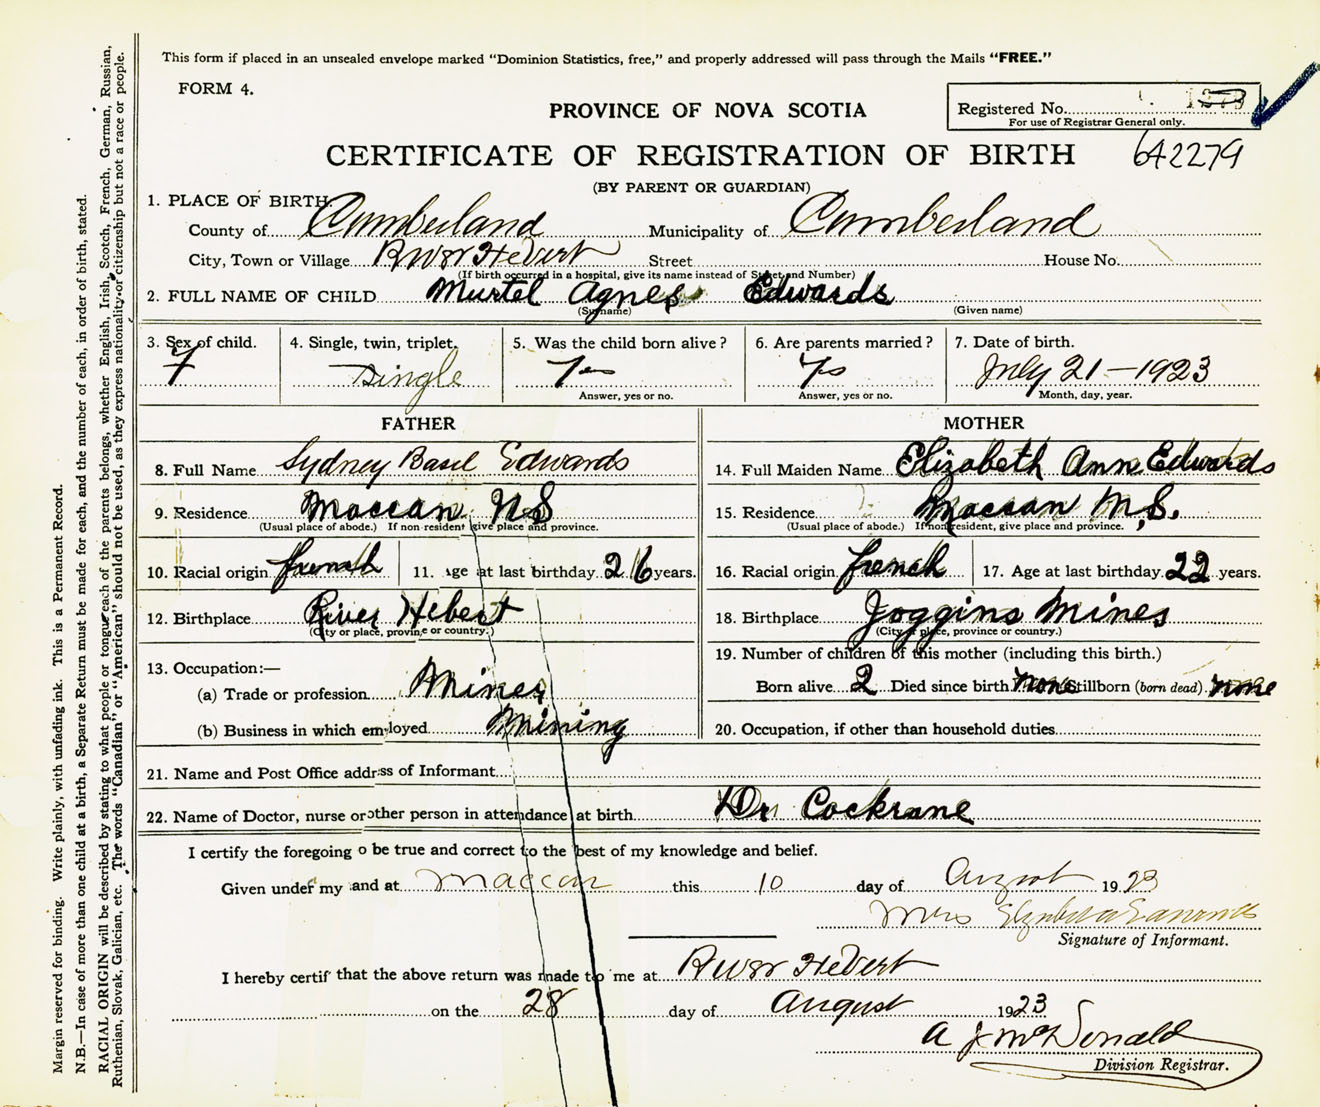 This form if placed in an unsealed envelope marked "Dominion Statistics, free," and properly addressed will pass through the Mails "FREE."
FORM 4.
PROVINCE OF NOVA SCOTIA
Registered No.
For use of Registrar General only.
CERTIFICATE OF REGISTRATION OF BIRTH
642279
(BY PARENT OR GUARDIAN)
1. PLACE OF BIRTH:
County of Cumberland Municipality of Cumberland
City, Town or Village River Hebert Street House No.
(If birth occurred in a hospital, give its name instead of Street and Number)
2. FULL NAME OF CHILD Muriel Agnes Edwards
(Surname) (Given name)
3. Sex of child. 4. Single, twin, triplet. 5. Was the child born alive? 6. Are parents married? 7. Date of birth.
F Single Yes Yes July 21-1923
Answer, yes or no. Answer, yes or no. Month, day, year.
FATHER MOTHER
8. Full Name Sydney Basil Edwards 14. Full Maiden Name Elizabeth Ann Edwards
9. Residence Maccan NS 15. Residence Maccan N.S.
(Usual place of abode.) If non-resident give place and province. (Usual place of abode.) If non-resident, give place and province.
10. Racial origin french 11. Age at last birthday 26 years. 16. Racial origin french 17. Age at last birthday 22 years.
12. Birthplace River Hebert 18. Birthplace Joggins Mines
(City or place, province or country.) (City or place, province or country.)
13. Occupation:— 19. Number of children of this mother (including this birth.)
(a) Trade or profession Miner Born alive 2 Died since birth none Stillborn (born dead) none
(b) Business in which employed Mining 20. Occupation, if other than household duties
21. Name and Post Office address of Informant
22. Name of Doctor, nurse or other person in attendance at birth Dr Cockrane
I certify the foregoing to be true and correct to the best of my knowledge and belief.
Given under my hand at Maccan this 10 day of August 1923
Mrs Elizabeth Edwards
Signature of Informant.
I hereby certify that the above return was made to me at River Hebert
on the 28 day of August 1923
A J McDonald
Division Registrar.
Margin reserved for binding. Write plainly, with unfading ink. This is a Permanent Record.
N.B.—In case of more than one child at a birth, a Separate Return must be made for each, and the number of each, in order of birth, stated.
RACIAL ORIGIN will be described by stating to what people or tongue each of the parents belongs, whether English, Irish, Scotch, French, German, Russian,
Ruthenian, Slovak, Galician, etc. The words "Canadian" or "American" should not be used, as they express nationality or citizenship but not a race or people.